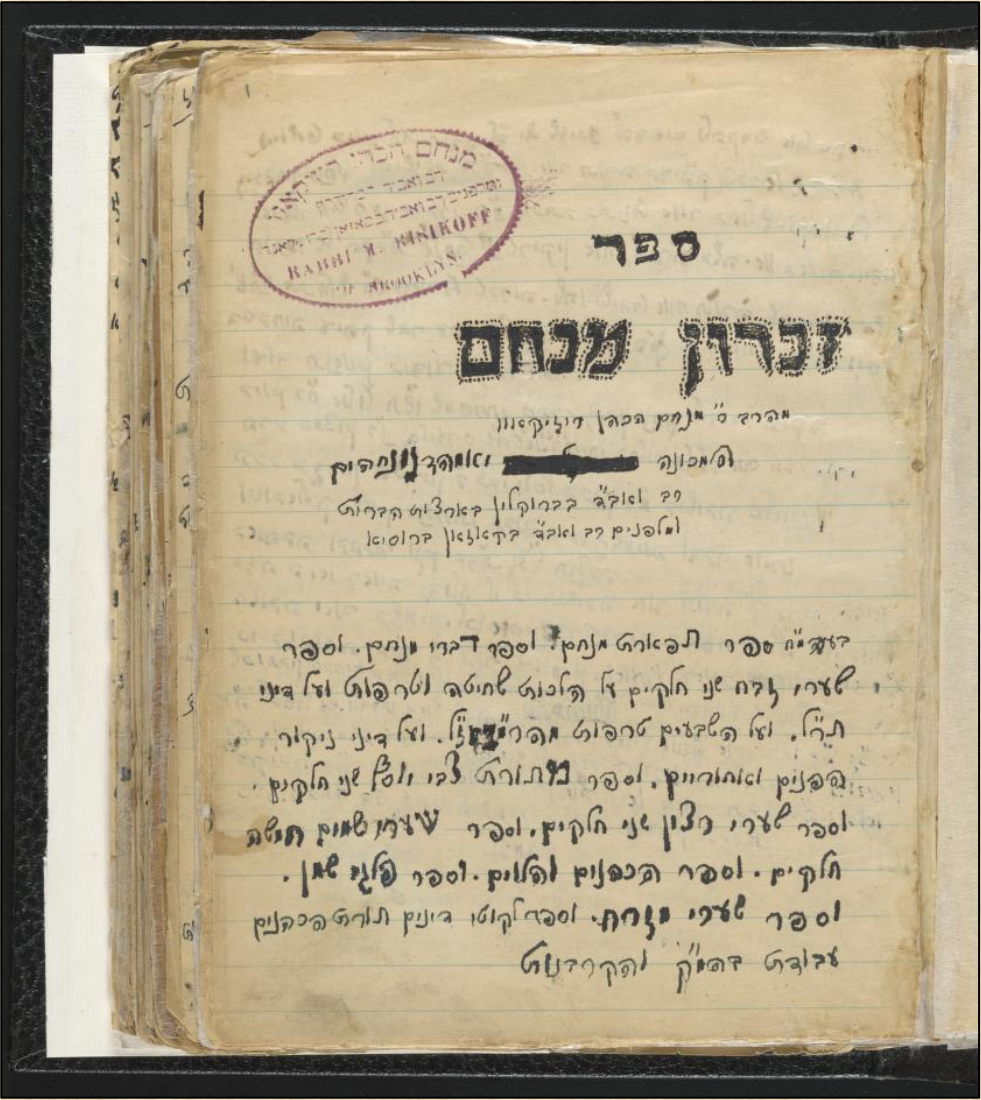 מנחם הכהן ריזיקאוו
רב ואב״ד בברוקלין
ומלפנים רב ואב״ד בקאזאן
RABBI M. RISIKOFF
BROOKLYN.
ספר
זכרון מנחם
מהרב ר׳ מנחם הכהן ריזיקאוו
המכונה
רב ואב״ד בברוקלין בארצות הברית
ומלפנים רב ואב״ד בקאזאן ברוסיא
ספר תפארת מנחם. וספר דברי מנחם. וספר
שערי זבח שני חלקים על הלכות שחיטה וטרפות ועל דיני
ועל השבעים טרפות ועל דיני ניקור
הפנים ואחוריים. וספר שני חלקים.
וספר שערי רצון שני חלקים. וספר שערי שמים חמשה
חלקים. וספר הכהנים והלוים. וספר פלגי שמן.
וספר שערי מזרח. וספר לקוטי דינים תורת הכהנים
עבודת בהמ״ק והקרבנות